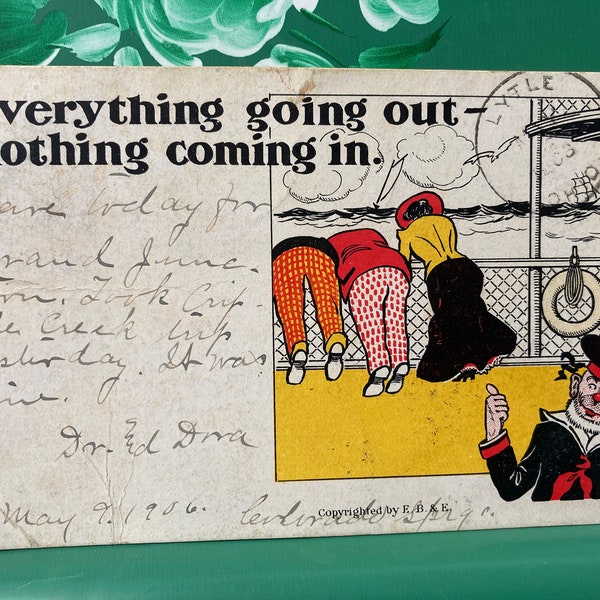 verything going out—
othing coming in.
ave today for
rand Junc.
Took Crip-
le Creek trip
sterday. It was
ine.
Dr. Ed Dora
May 9. 1906. Colorado Spgs.
Copyrighted by E. B. & E.
LYTLE